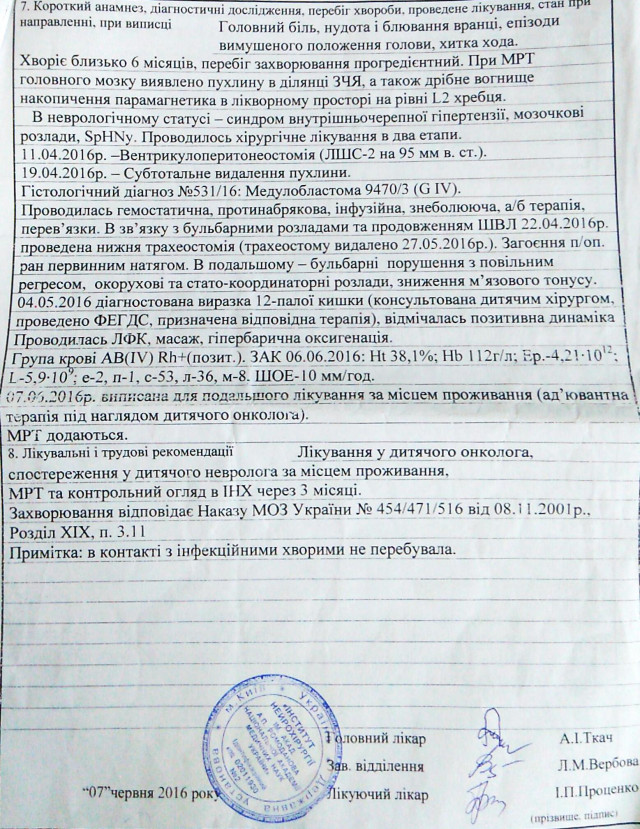 7. Короткий анамнез, діагностичні дослідження, перебіг хвороби, проведене лікування, стан при
направленні, при виписці Головний біль, нудота і блювання вранці, епізоди
вимушеного положення голови, хитка хода.
Хворіє близько 6 місяців, перебіг захворювання прогредієнтний. При МРТ
головного мозку виявлено пухлину в ділянці ЗЧЯ, а також дрібне вогнище
накопичення парамагнетика в лікворному просторі на рівні L2 хребця.
В неврологічному статусі – синдром внутрішньочерепної гіпертензії, мозочкові
розлади, SpHNy. Проводилось хірургічне лікування в два етапи.
11.04.2016р. –Вентрикулоперитонеостомія (ЛШС-2 на 95 мм в. ст.).
19.04.2016р. – Субтотальне видалення пухлини.
Гістологічний діагноз №531/16: Медулобластома 9470/3 (G IV).
Проводилась гемостатична, протинабрякова, інфузійна, знеболююча, а/б терапія,
перев’язки. В зв’язку з бульбарними розладами та продовженням ШВЛ 22.04.2016р.
проведена нижня трахеостомія (трахеостому видалено 27.05.2016р.). Загоєння п/оп.
ран первинним натягом. В подальшому – бульбарні порушення з повільним
регресом, окорухові та стато-координаторні розлади, зниження м’язового тонусу.
04.05.2016 діагностована виразка 12-палої кишки (консультована дитячим хірургом,
проведено ФЕГДС, призначена відповідна терапія), відмічалась позитивна динаміка
Проводилась ЛФК, масаж, гіпербарична оксигенація.
Група крові АВ(IV) Rh+(позит.). ЗАК 06.06.2016: Ht 38,1%; Hb 112г/л; Ер.-4,21·10¹²;
L-5,9·10⁹; е-2, п-1, с-53, л-36, м-8. ШОЕ-10 мм/год.
07.06.2016р. виписана для подальшого лікування за місцем проживання (ад’ювантна
терапія під наглядом дитячого онколога).
МРТ додаються.
8. Лікувальні і трудові рекомендації Лікування у дитячого онколога,
спостереження у дитячого невролога за місцем проживання,
МРТ та контрольний огляд в ІНХ через 3 місяці.
Захворювання відповідає Наказу МОЗ України № 454/471/516 від 08.11.2001р.,
Розділ XIX, п. 3.11
Примітка: в контакті з інфекційними хворими не перебувала.
Головний лікар А.І.Ткач
Зав. відділення Л.М.Вербова
“07”червня 2016 року Лікуючий лікар І.П.Проценко
(прізвище, підпис)
м. Київ * Україна * Державна установа
«ІНСТИТУТ
НЕЙРОХІРУРГІЇ